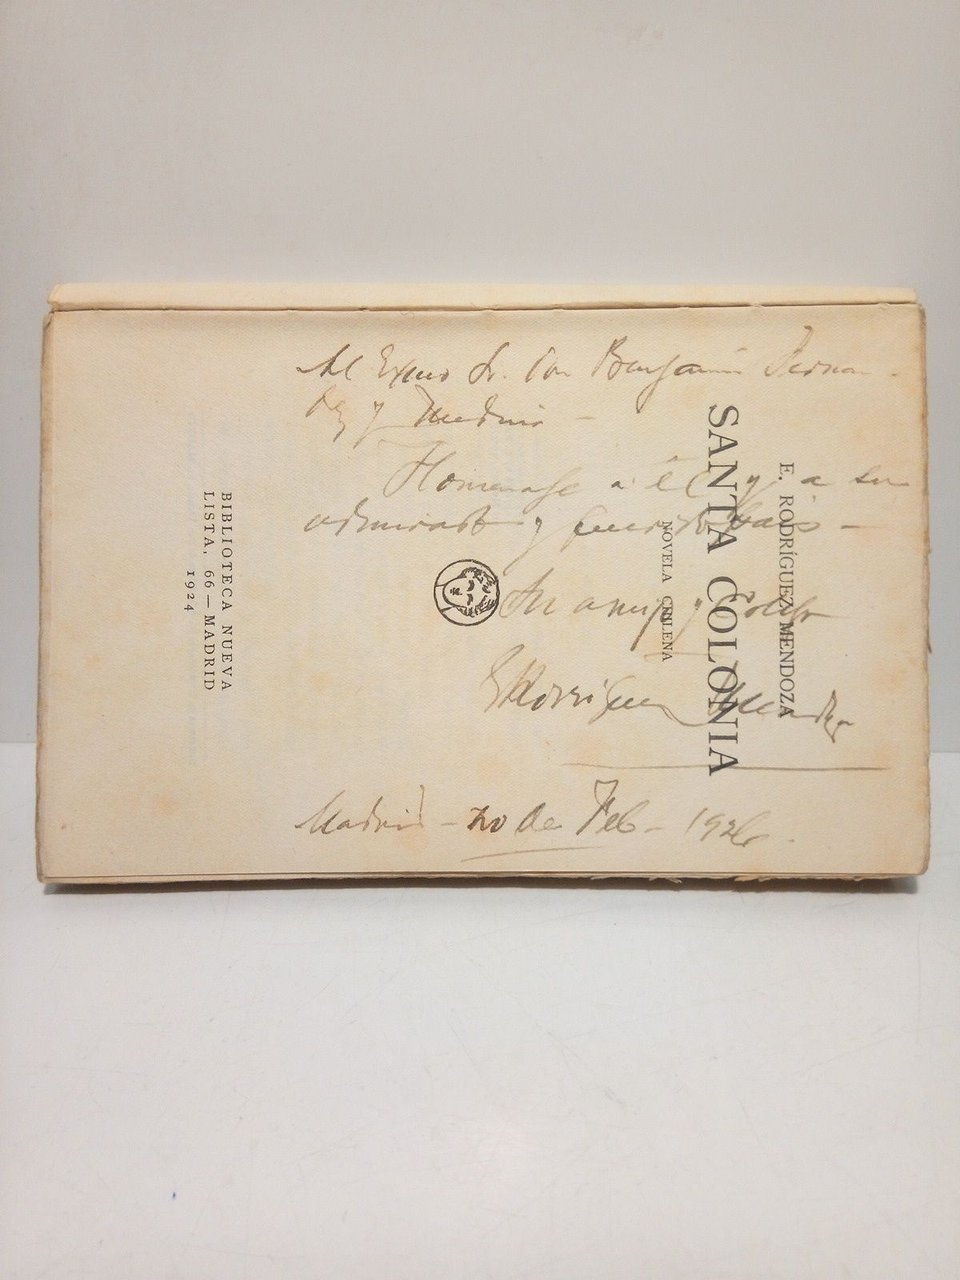 E. RODRÍGUEZ MENDOZA
SANTA COLONIA
NOVELA CHILENA
BIBLIOTECA NUEVA
LISTA, 66—MADRID
1924
Al Exmo Sr. Don Benjamín Fernan-
dez y Medina —
Homenage a él y a su
admirado y querido País —
Su amigo y colega
E Rodríguez Mendoza
Madrid — 20 de Feb — 1926.